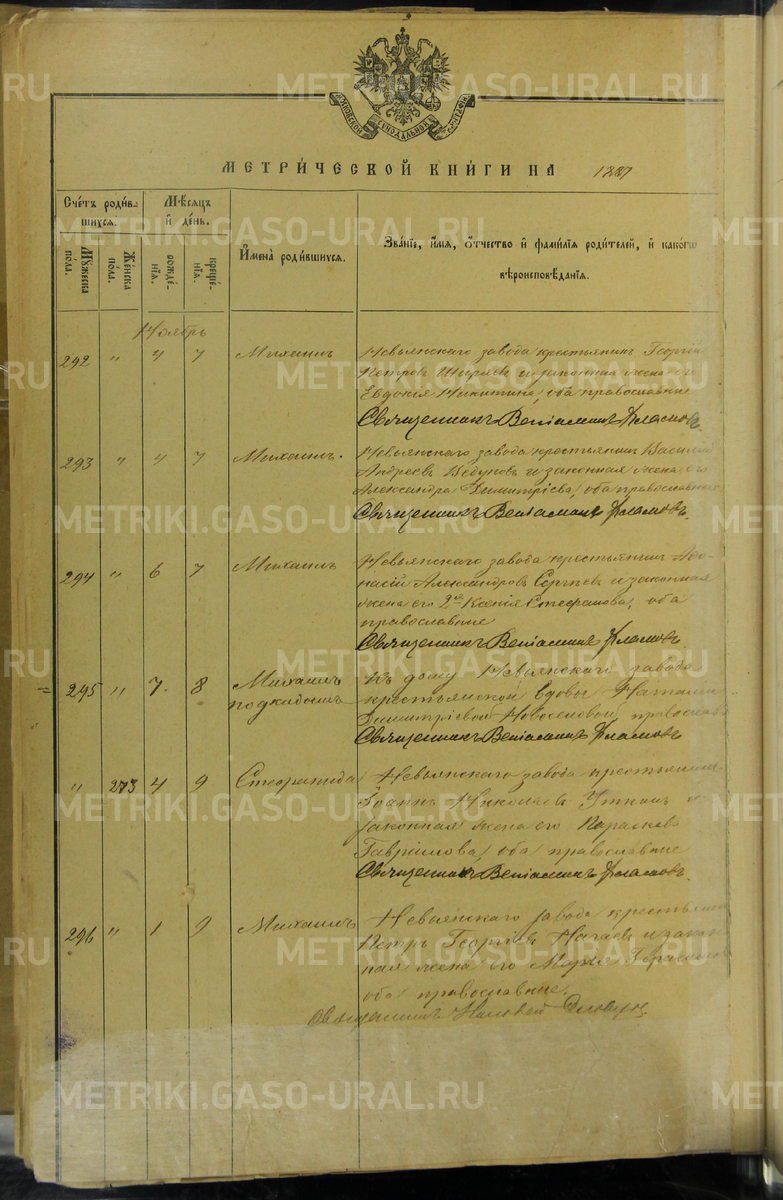 МЕТРИ́ЧЕСКОЙ КНИ́ГИ НА 1887
Сче́тъ роди́в-
шихся.
Мѣ́сяцъ
и҆ де́нь.
И҆мена̀ роди́вшихся.
Зва́нїе, и҆́мя, о҆́тчество и҆ фами́лїя роди́телей, и҆ како́гѡ
вѣроисповѣ́данїя.
Мꙋ́жеска
по́ла.
Же́нска
по́ла.
рожде́-
нїя.
креще́-
нїя.
Ноябрь
292 " 4 7 Михаилъ Невьянскаго завода крестьянинъ Георгій
Петровъ и законная жена его
Евдокія Никитина, оба православные
Священникъ Веніаминъ
293 " 4 7 Михаилъ. Невьянскаго завода крестьянинъ Василій
Андреевъ и законная жена его
Александра Димитріева, оба православные
Священникъ Веніаминъ
294 " 6 7 Михаилъ Невьянскаго завода крестьянинъ Афо-
насій Александровъ Сергѣевъ и законная
жена его 2ая Ксенія Стефанова, оба
православные
Священникъ Веніаминъ
295 " 7 8 Михаилъ Къ дому Невьянскаго завода
подкидышъ крестьянской вдовы Наталіи
Димитріевой православ
Священникъ Веніаминъ
" 273 4 9 Стефанида Невьянскаго завода крестьянинъ
Іоаннъ Николаевъ Уткинъ и
законная жена его Параскева
Гавріилова, оба православные
Священникъ Веніаминъ
296 " 1 9 Михаилъ Невьянскаго завода крестьянинъ
Петръ Георгіевъ и закон-
ная жена его Марія
оба православные.
Священникъ
METRIKI.GASO-URAL.RU